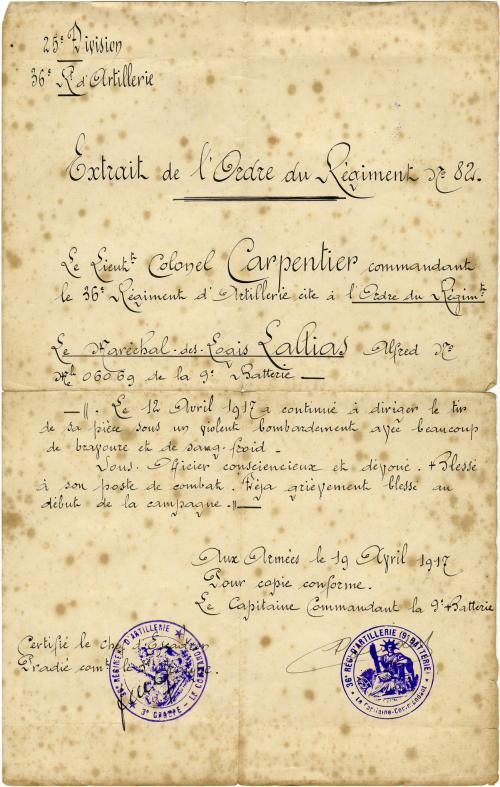 25e Division
36e Rt d'Artillerie
Extrait de l'Ordre du Régiment No 82.
Le Lieutt Colonel Carpentier commandant
le 36e Régiment d'Artillerie cite à l'Ordre du Régimt
Le Maréchal-des-Logis Lallias Alfred No
Mle 06069 de la 9e Batterie —
—". Le 12 Avril 1917 a continué à diriger le tir
de sa pièce sous un violent bombardement avec beaucoup
de bravoure et de sang-froid.
Sous-Officier consciencieux et dévoué. Blessé
à son poste de combat. Déja grièvement blessé au
début de la campagne."—
Aux Armées le 19 Avril 1917
Pour copie conforme.
Le Capitaine Commandant la 9e Batterie
Certifié le
Pradié comt
RÉGIMENT D'ARTILLERIE
3e GROUPE - LE
36e REG. D'ARTILLERIE (9e BATTERIE)
Le Capitaine-Commandant